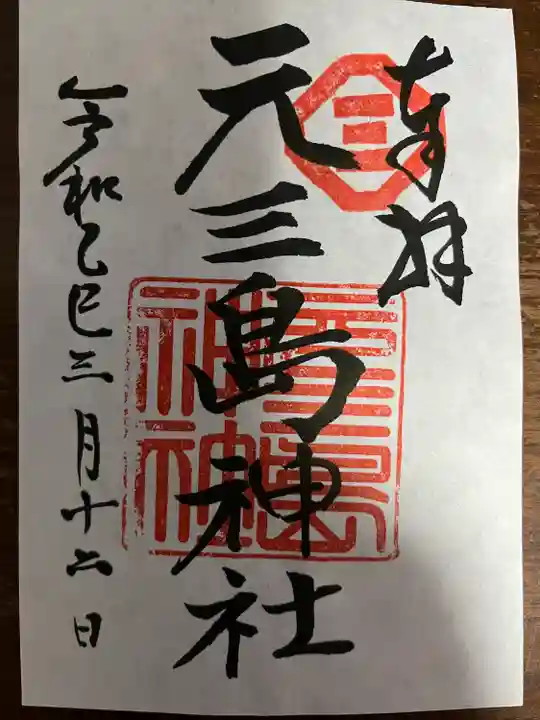 奉拝
三
元三島神社
令和乙巳三月十六日